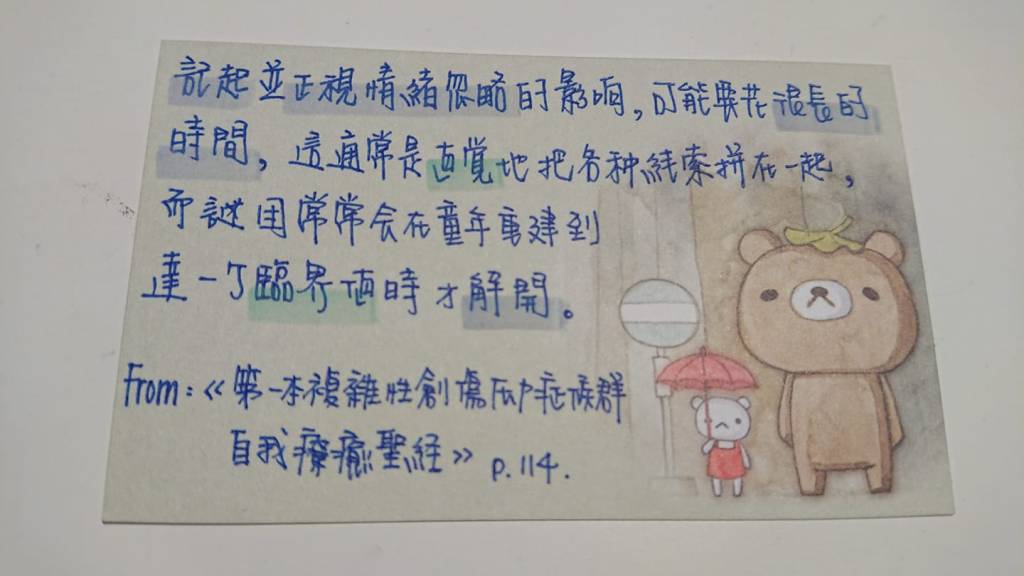 記起並正視情緒忽略的影响,可能要花很長的
時間,這通常是直覚地把各种線索拼在一起,
而謎团常常会在童年重建到
達一个臨界值時才解開。
From:《第一本複雜性創傷后压症候群
自我療癒聖経》 p.114.